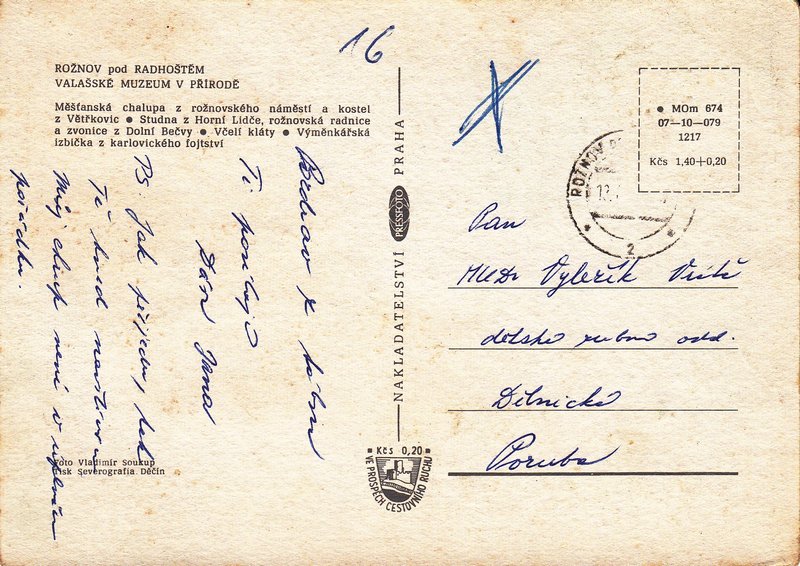 16
ROŽNOV pod RADHOŠTĚM
VALAŠSKÉ MUZEUM V PŘÍRODĚ
Měšťanská chalupa z rožnovského náměstí a kostel
z Větřkovic ● Studna z Horní Lidče, rožnovská radnice
a zvonice z Dolní Bečvy ● Včelí kláty ● Výměnkářská
izbička z karlovického fojtství
Pozdrav z tábora
Ti posílají
Dáša Jana
PS Jak přijedu, tak
Tě hned navštívím
Můj chrup není v
pořádku.
Foto Vladimír Soukup
Tisk Severografia Děčín
NAKLADATELSTVÍ PRESSFOTO PRAHA
Kčs 0,20
VE PROSPĚCH CESTOVNÍHO RUCHU
● MOm 674
07-10-079
1217
Kčs 1,40+0,20
ROŽNOV P
2
Pan
MUDr Vyležík
dětské zubní odd.
Dělnická
Poruba